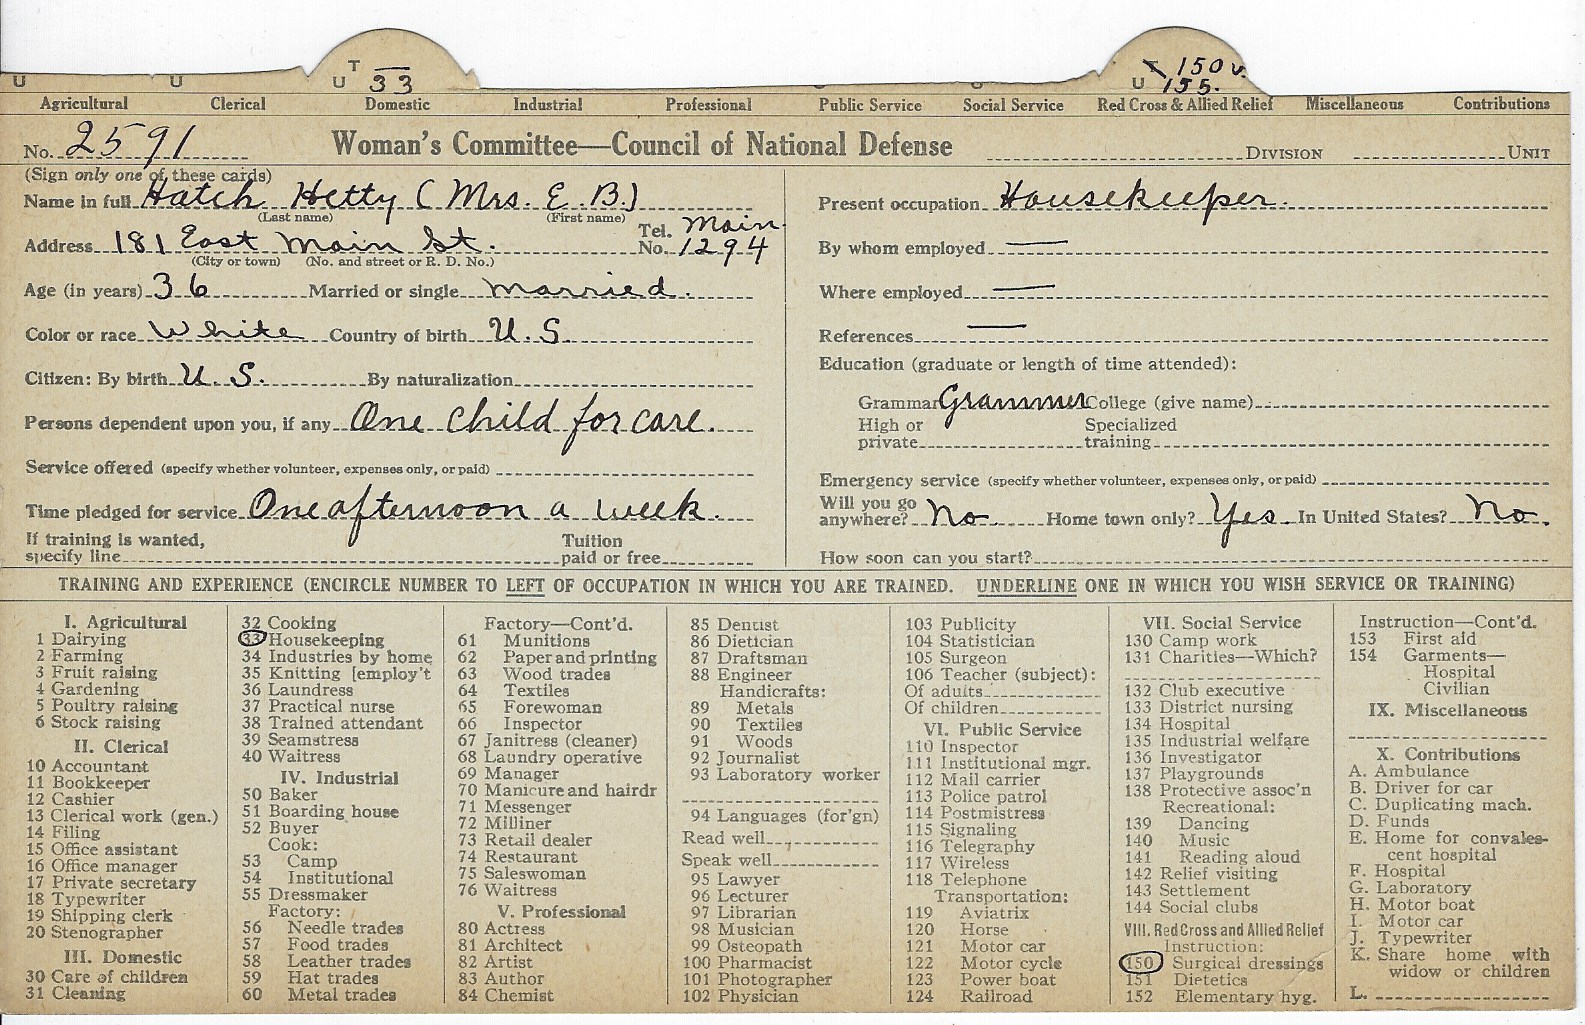 T
U 33
T 150 v.
U 155.
U U
Agricultural Clerical Domestic Industrial Professional Public Service Social Service Red Cross & Allied Relief Miscellaneous Contributions
No. 2591 Woman's Committee—Council of National Defense DIVISION UNIT
(Sign only one of these cards)
Name in full Hatch Hetty (Mrs. E. B.)
(Last name) (First name)
Address 181 East Main St. Tel. No. Main 1294
(City or town) (No. and street or R. D. No.)
Age (in years) 36 Married or single Married.
Color or race White Country of birth U. S.
Citizen: By birth U. S. By naturalization
Persons dependent upon you, if any One child for care.
Service offered (specify whether volunteer, expenses only, or paid)
Time pledged for service One afternoon a week.
If training is wanted,
specify line Tuition paid or free
Present occupation Housekeeper.
By whom employed —
Where employed —
References —
Education (graduate or length of time attended):
Grammar Grammer College (give name)
High or private Specialized training
Emergency service (specify whether volunteer, expenses only, or paid)
Will you go anywhere? No. Home town only? Yes. In United States? No.
How soon can you start?
TRAINING AND EXPERIENCE (ENCIRCLE NUMBER TO LEFT OF OCCUPATION IN WHICH YOU ARE TRAINED. UNDERLINE ONE IN WHICH YOU WISH SERVICE OR TRAINING)
I. Agricultural
1 Dairying
2 Farming
3 Fruit raising
4 Gardening
5 Poultry raising
6 Stock raising
II. Clerical
10 Accountant
11 Bookkeeper
12 Cashier
13 Clerical work (gen.)
14 Filing
15 Office assistant
16 Office manager
17 Private secretary
18 Typewriter
19 Shipping clerk
20 Stenographer
III. Domestic
30 Care of children
31 Cleaning
32 Cooking
33 Housekeeping
34 Industries by home
35 Knitting [employ't
36 Laundress
37 Practical nurse
38 Trained attendant
39 Seamstress
40 Waitress
IV. Industrial
50 Baker
51 Boarding house
52 Buyer
Cook:
53 Camp
54 Institutional
55 Dressmaker
Factory:
56 Needle trades
57 Food trades
58 Leather trades
59 Hat trades
60 Metal trades
Factory—Cont'd.
61 Munitions
62 Paper and printing
63 Wood trades
64 Textiles
65 Forewoman
66 Inspector
67 Janitress (cleaner)
68 Laundry operative
69 Manager
70 Manicure and hairdr
71 Messenger
72 Milliner
73 Retail dealer
74 Restaurant
75 Saleswoman
76 Waitress
V. Professional
80 Actress
81 Architect
82 Artist
83 Author
84 Chemist
85 Dentist
86 Dietician
87 Draftsman
88 Engineer
Handicrafts:
89 Metals
90 Textiles
91 Woods
92 Journalist
93 Laboratory worker
94 Languages (for'gn)
Read well
Speak well
95 Lawyer
96 Lecturer
97 Librarian
98 Musician
99 Osteopath
100 Pharmacist
101 Photographer
102 Physician
103 Publicity
104 Statistician
105 Surgeon
106 Teacher (subject):
Of adults
Of children
VI. Public Service
110 Inspector
111 Institutional mgr.
112 Mail carrier
113 Police patrol
114 Postmistress
115 Signaling
116 Telegraphy
117 Wireless
118 Telephone
Transportation:
119 Aviatrix
120 Horse
121 Motor car
122 Motor cycle
123 Power boat
124 Railroad
VII. Social Service
130 Camp work
131 Charities—Which?
132 Club executive
133 District nursing
134 Hospital
135 Industrial welfare
136 Investigator
137 Playgrounds
138 Protective assoc'n
Recreational:
139 Dancing
140 Music
141 Reading aloud
142 Relief visiting
143 Settlement
144 Social clubs
VIII. Red Cross and Allied Relief
Instruction:
150 Surgical dressings
151 Dietetics
152 Elementary hyg.
Instruction—Cont'd.
153 First aid
154 Garments—
Hospital
Civilian
IX. Miscellaneous
X. Contributions
A. Ambulance
B. Driver for car
C. Duplicating mach.
D. Funds
E. Home for convales-
cent hospital
F. Hospital
G. Laboratory
H. Motor boat
I. Motor car
J. Typewriter
K. Share home with
widow or children
L.